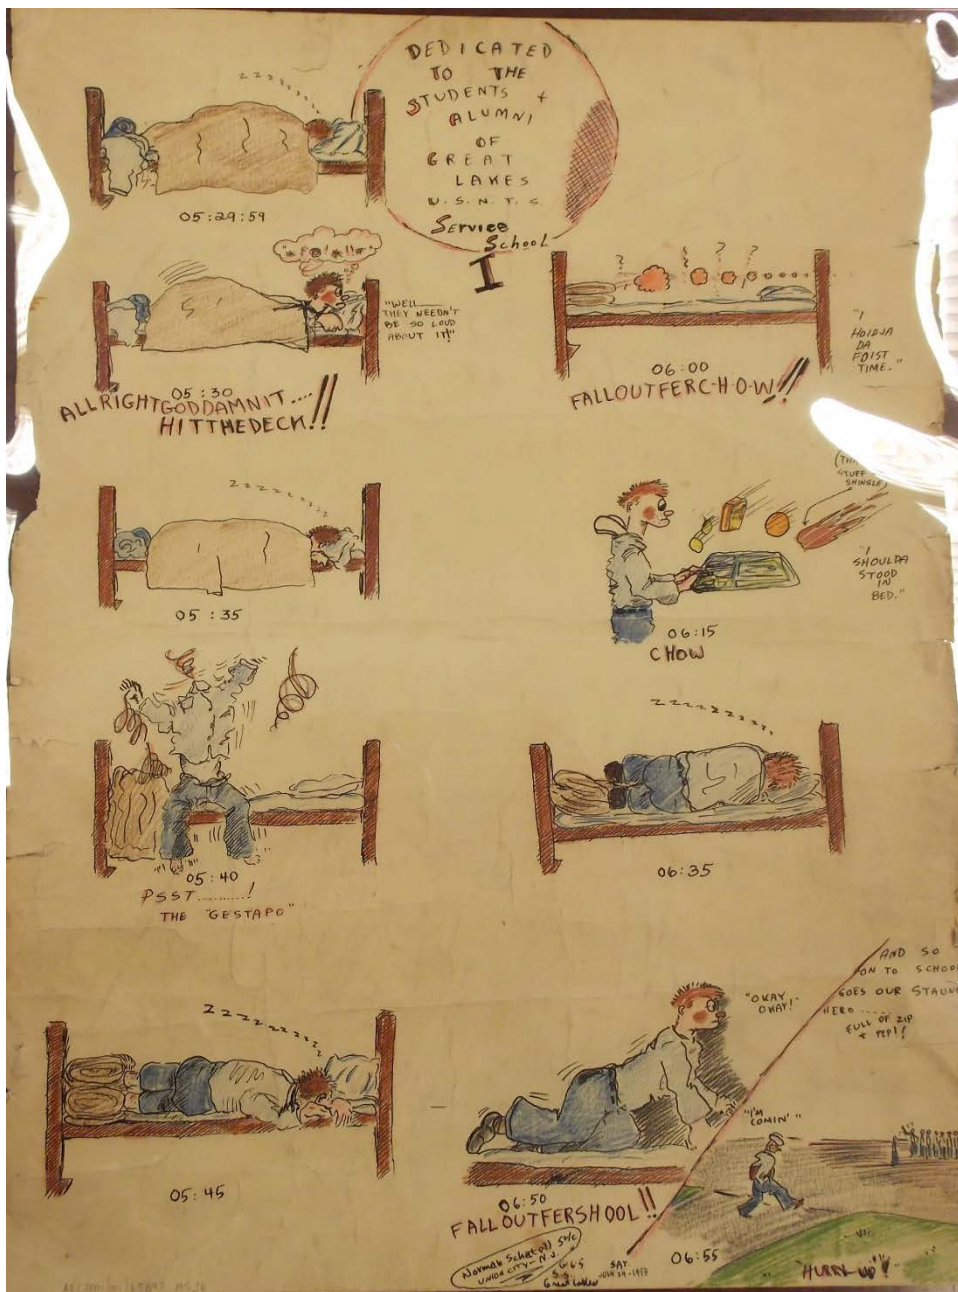 DEDICATED
TO THE
STUDENTS +
ALUMNI
OF
GREAT
LAKES
U.S.N.T.S.
SERVICE
SCHOOL
I
zzzzzzzz
05:29:59
"WELL____
THEY NEEDN'T
BE SO LOUD
ABOUT IT!"
05:30
ALLRIGHTGODDAMNIT....
HITTHEDECK!!
zzzzzzzzz
05:35
05:40
PSST.........!
THE "GESTAPO"
zzzzzzzzz
05:45
? ? ? ?
"I
HOIDJA
DA
FOIST
TIME."
06:00
FALLOUTFERC-H-O-W!!
STUFF
SHINGLE)
"I
SHOULDA
STOOD
IN
BED."
06:15
CHOW
zzzzzzzzzz
06:35
"OKAY
OKAY!"
06:50
FALLOUTFERSHOOL!!
AND SO
ON TO SCHOOL
GOES OUR STAUN
HERO......
FULL OF ZIP
+ PEP!!
"I'M
COMIN'"
06:55
"HURRY UP"!
Norman Schatell
UNION CITY-N.J.
Great Lakes
SAT.